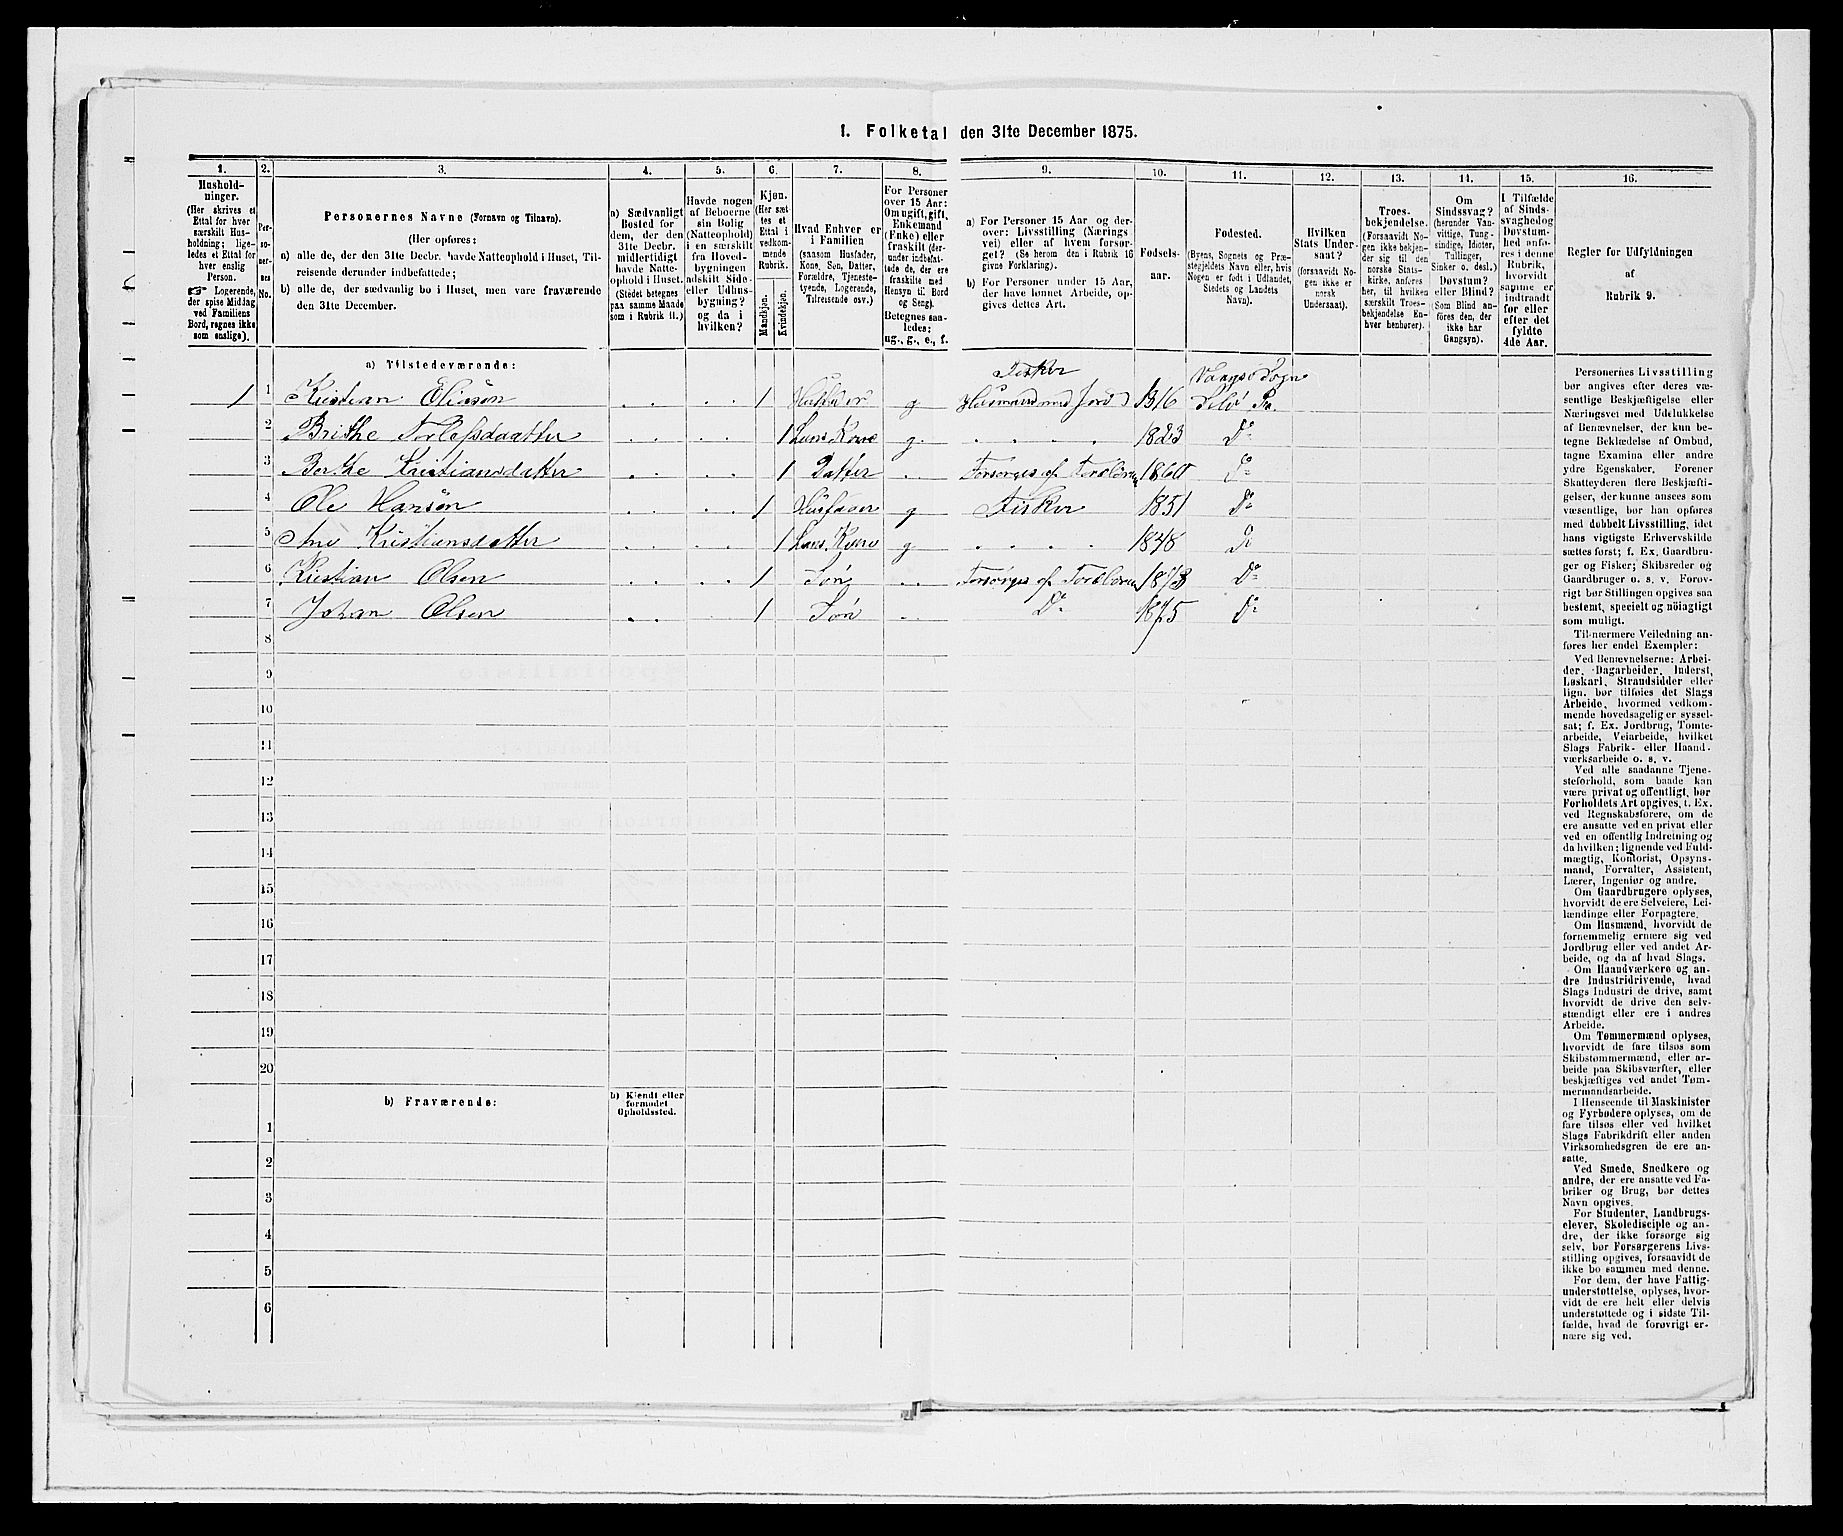 1. Folketal den 31te December 1875.
1.
Hushold-
ninger.
(Her skrives et
Ettal for hver
særskilt Hus-
holdning; lige-
ledes et Ettal for
hver enslig
Person.
☞ Logerende,
der spise Middag
ved Familiens
Bord, regnes ikke
som enslige).
2.
Per-
so-
ner-
nes
No.
3.
Personernes Navne (Fornavn og Tilnavn).
(Her opføres:
a) alle de, der den 31te Decbr. havde Natteophold i Huset, Til-
reisende derunder indbefattede;
b) alle de, der sædvanlig bo i Huset, men vare fraværende
den 31te December.
4.
a) Sædvanligt
Bosted for
dem, der den
31te Decbr.
midlertidigt
havde Natte-
ophold i Huset.
(Stedet betegnes
paa samme Maade
som i Rubrik 11.)
5.
Havde nogen
af Beboerne
sin Bolig
(Natteophold)
i en særskilt
fra Hoved-
bygningen
adskilt Side-
eller Udhus-
bygning?
og da i
hvilken?
6.
Kjøn.
(Her sæt-
tes et
Ettal i
vedkom-
mende
Rubrik.
Mandkjøn.
Kvindekjøn.
7.
Hvad Enhver er
i Familien
(saasom Husfader,
Kone, Søn, Datter,
Forældre, Tjeneste-
tyende, Logerende,
Tilreisende osv.)
8.
For Personer
over 15 Aar:
Om ugift, gift,
Enkemand
(Enke) eller
fraskilt (der-
under indbefat-
tede de, der ere
fraskilte med
Hensyn til Bord
og Seng).
Betegnes saa-
ledes:
ug., g., e., f.
9.
a) For Personer 15 Aar og der-
over: Livsstilling (Nærings
vei) eller af hvem forsør-
get? (Se herom den i Rubrik 16
givne Forklaring).
b) For Personer under 15 Aar,
der have lønnet Arbeide, op-
gives dettes Art.
10.
Fødsels-
aar.
11.
Fødested.
(Byens, Sognets og Præ-
stegjeldets Navn eller, hvis
Nogen er født i Udlandet,
Stedets og Landets
Navn).
12.
Hvilken
Stats Under-
saat?
(forsaavidt No-
gen ikke er
norsk
Undersaat).
13.
Troes-
bekjendelse.
(Forsaavidt No-
gen ikke bekjen-
der sig til den
norske Stats-
kirke, anføres
her, til hvilken
særskilt Troes-
bekjendelse En-
hver henhører).
14.
Om
Sindssvag?
(herunder Van-
vittige, Tung-
sindige, Idioter,
Tullinger,
Sinker o. desl.)
Døvstum?
eller Blind?
(Som Blind an-
føres den, der
ikke har
Gangsyn).
15.
I Tilfælde
af Sinds-
svaghed og
Døvstum-
hed anfø-
res i denne
Rubrik,
hvorvidt
samme er
indtraadt
før eller
efter det
fyldte
4de Aar.
16.
Regler for Udfyldningen
af
Rubrik 9.
a) Tilstedeværende:
Fisker Vaagsø Sogn
1 1 Kristian Eliasøn . . . . 1 Husfader g Husmand med Jord 1816 Selø Pr.
2 Brithe Torlefsdaatter . . . . 1 hans Kone g . . . . 1823 D°
3 Berthe Kristiansdatter . . . . 1 Datter . . Forsørges af Forældrene 1860 D°
4 Ole Hansøn . . . . 1 Husfader g Fisker 1851 D°
5 Ane Kristiansdatter . . . . 1 hans Kone g . . . . 1848 D°
6 Kristian Olsen . . . . 1 Søn . . Forsørges af Forældrene 1873 D°
7 Johan Olsen . . . . 1 Søn . . D° 1875 D°
8
9
10
11
12
13
14
15
16
17
18
19
20
b) Fraværende:
b) Kjendt eller
formodet
Opholdssted.
1
2
3
4
5
6
Personernes Livsstilling
bør angives efter deres væ-
sentlige Beskjæftigelse eller
Næringsvei med Udelukkelse
af Benævnelser, der kun be-
tegne Beklædelse af Ombud,
tagne Examina eller andre
ydre Egenskaber. Forener
Skatteyderen flere Beskjæfti-
gelser, der kunne ansees som
væsentlige, bør han opføres
med dobbelt Livsstilling, idet
hans vigtigste Erhvervskilde
sættes først; f. Ex. Gaardbru-
ger og Fisker; Skibsreder og
Gaardbruger o. s. v. Forøv-
rigt bør Stillingen opgives saa
bestemt, specielt og nöiagtigt
som muligt.
Til nærmere Veiledning an-
føres her endel Exempler:
Ved Benævnelserne: Arbei-
der, Dagarbeider, Inderst,
Løskarl, Strandsidder eller
lign. bør tilføies det Slags
Arbeide, hvormed vedkom-
mende hovedsagelig er syssel-
sat; f. Ex. Jordbrug, Tomte-
arbeide, Veiarbeide, hvilket
Slags Fabrik- eller Haand-
værksarbeide o. s. v.
Ved alle saadanne Tjene-
steforhold, som baade kan
være privat og offentligt, bør
Forholdets Art opgives, t. Ex.
ved Regnskabsførere, om de
ere ansatte ved en privat eller
ved en offentlig Indretning og
da hvilken; lignende ved Fuld-
mægtig, Kontorist, Opsyns-
mand, Forvalter, Assistent,
Lærer, Ingeniør og andre.
Om Gaardbrugere oplyses,
hvorvidt de ere Selveiere, Lei-
lændinge eller Forpagtere.
Om Husmænd, hvorvidt de
fornemmelig ernære sig ved
Jordbrug eller ved andet Ar-
beide, og da af hvad Slags.
Om Haandværkere og an-
dre Industridrivende, hvad
Slags Industri de drive, samt
hvorvidt de drive den selv-
stændigt eller ere i andres
Arbeide.
Om Tømmermænd oplyses,
hvorvidt de fare tilsøs som
Skibstømmermænd, eller ar-
beide paa Skibsværfter, eller
beskjæftiges ved andet Tøm-
mermandsarbeide.
I Henseende til Maskinister
og Fyrbødere oplyses, om de
fare tilsøs eller ved hvilket
Slags Fabrikdrift eller anden
Virksomhedsgren de ere an-
satte.
Ved Smede, Snedkere og
andre, der ere ansatte ved Fa-
briker og Brug, bør dettes
Navn opgives.
For Studenter, Landbrugs-
elever, Skoledisciple og an-
dre, der ikke forsørge sig
selv, bør Forsørgerens Livs-
stilling opgives, forsaavidt de
ikke bo sammen med denne.
For dem, der have Fattig-
understøttelse, oplyses, hvor-
vidt de ere helt eller delvis
understøttede og i sidste Til-
fælde, hvad de forøvrigt er-
nære sig ved.